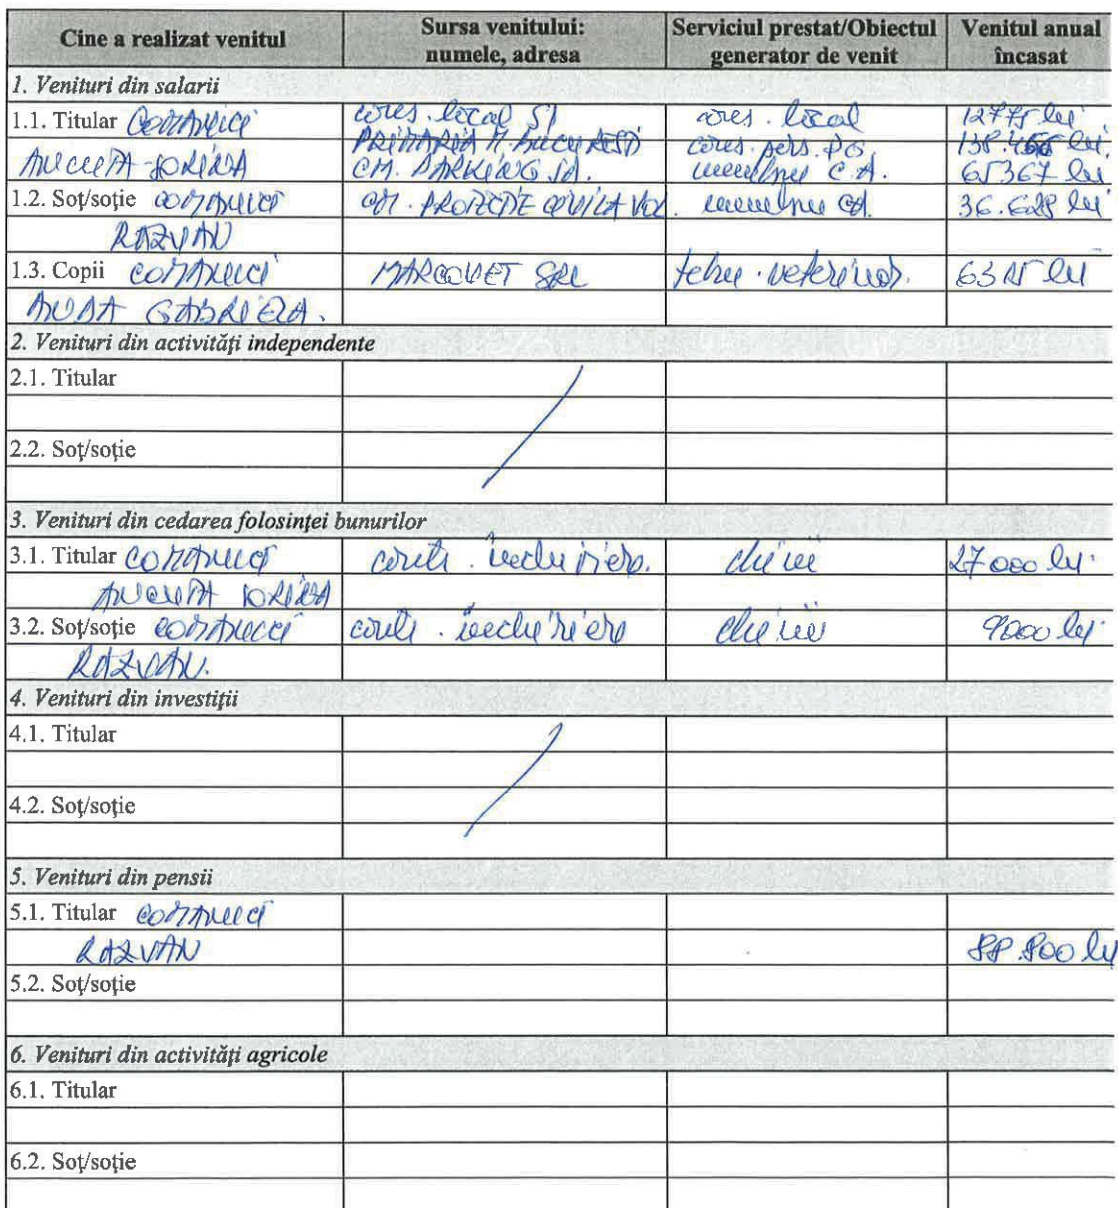 Cine a realizat venitul
Sursa venitului:
numele, adresa
Serviciul prestat/Obiectul
generator de venit
Venitul anual
încasat
1. Venituri din salarii
1.1. Titular
cons. local S1
cons. local
12775 lei
PRIMARIA M. BUCURESTI
cons. pers. PG.
138. lei.
CM. PARKING SA.
membru C.A.
65367 lei
1.2. Soț/soție COMĂNICI
CM. PROTECȚIE CIVILA VOL.
membru CA.
36.628 lei
RAZVAN
1.3. Copii COMĂNICI
MARCOVET SRL
tehn. veterinar.
lei
GABRIELA.
2. Venituri din activități independente
2.1. Titular
2.2. Soț/soție
3. Venituri din cedarea folosinței bunurilor
3.1. Titular COMĂNICI
contr. inchiriere.
chirii
27000 lei
3.2. Soț/soție COMĂNICI
contr. inchiriere
chirii
9000 lei
RAZVAN.
4. Venituri din investiții
4.1. Titular
4.2. Soț/soție
5. Venituri din pensii
5.1. Titular COMĂNICI
RAZVAN
88.800 lei
5.2. Soț/soție
6. Venituri din activități agricole
6.1. Titular
6.2. Soț/soție